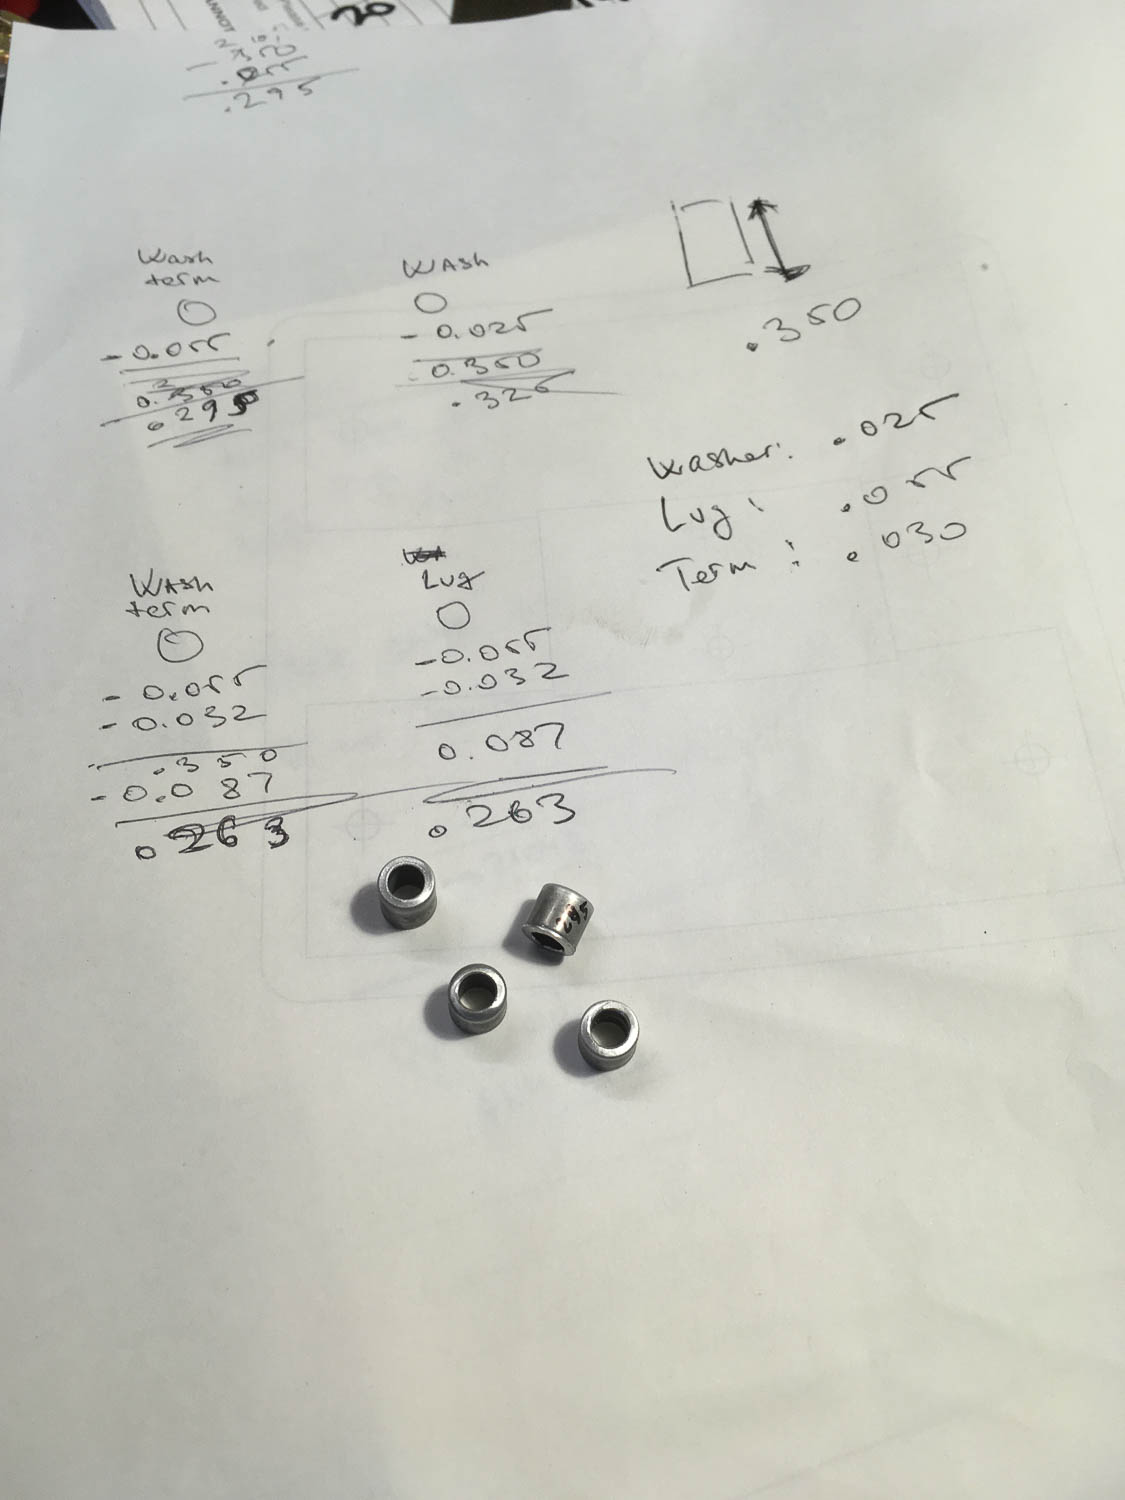 ANNOT
20
.055
.295
Wash
term
- 0.055
0.350
.295
WASH
- 0.025
0.350
.325
.350
Washer: .025
Lug: .055
Term: .030
WASH
term
- 0.055
- 0.032
.350
- 0.087
.263
Lug
-0.055
-0.032
0.087
.263